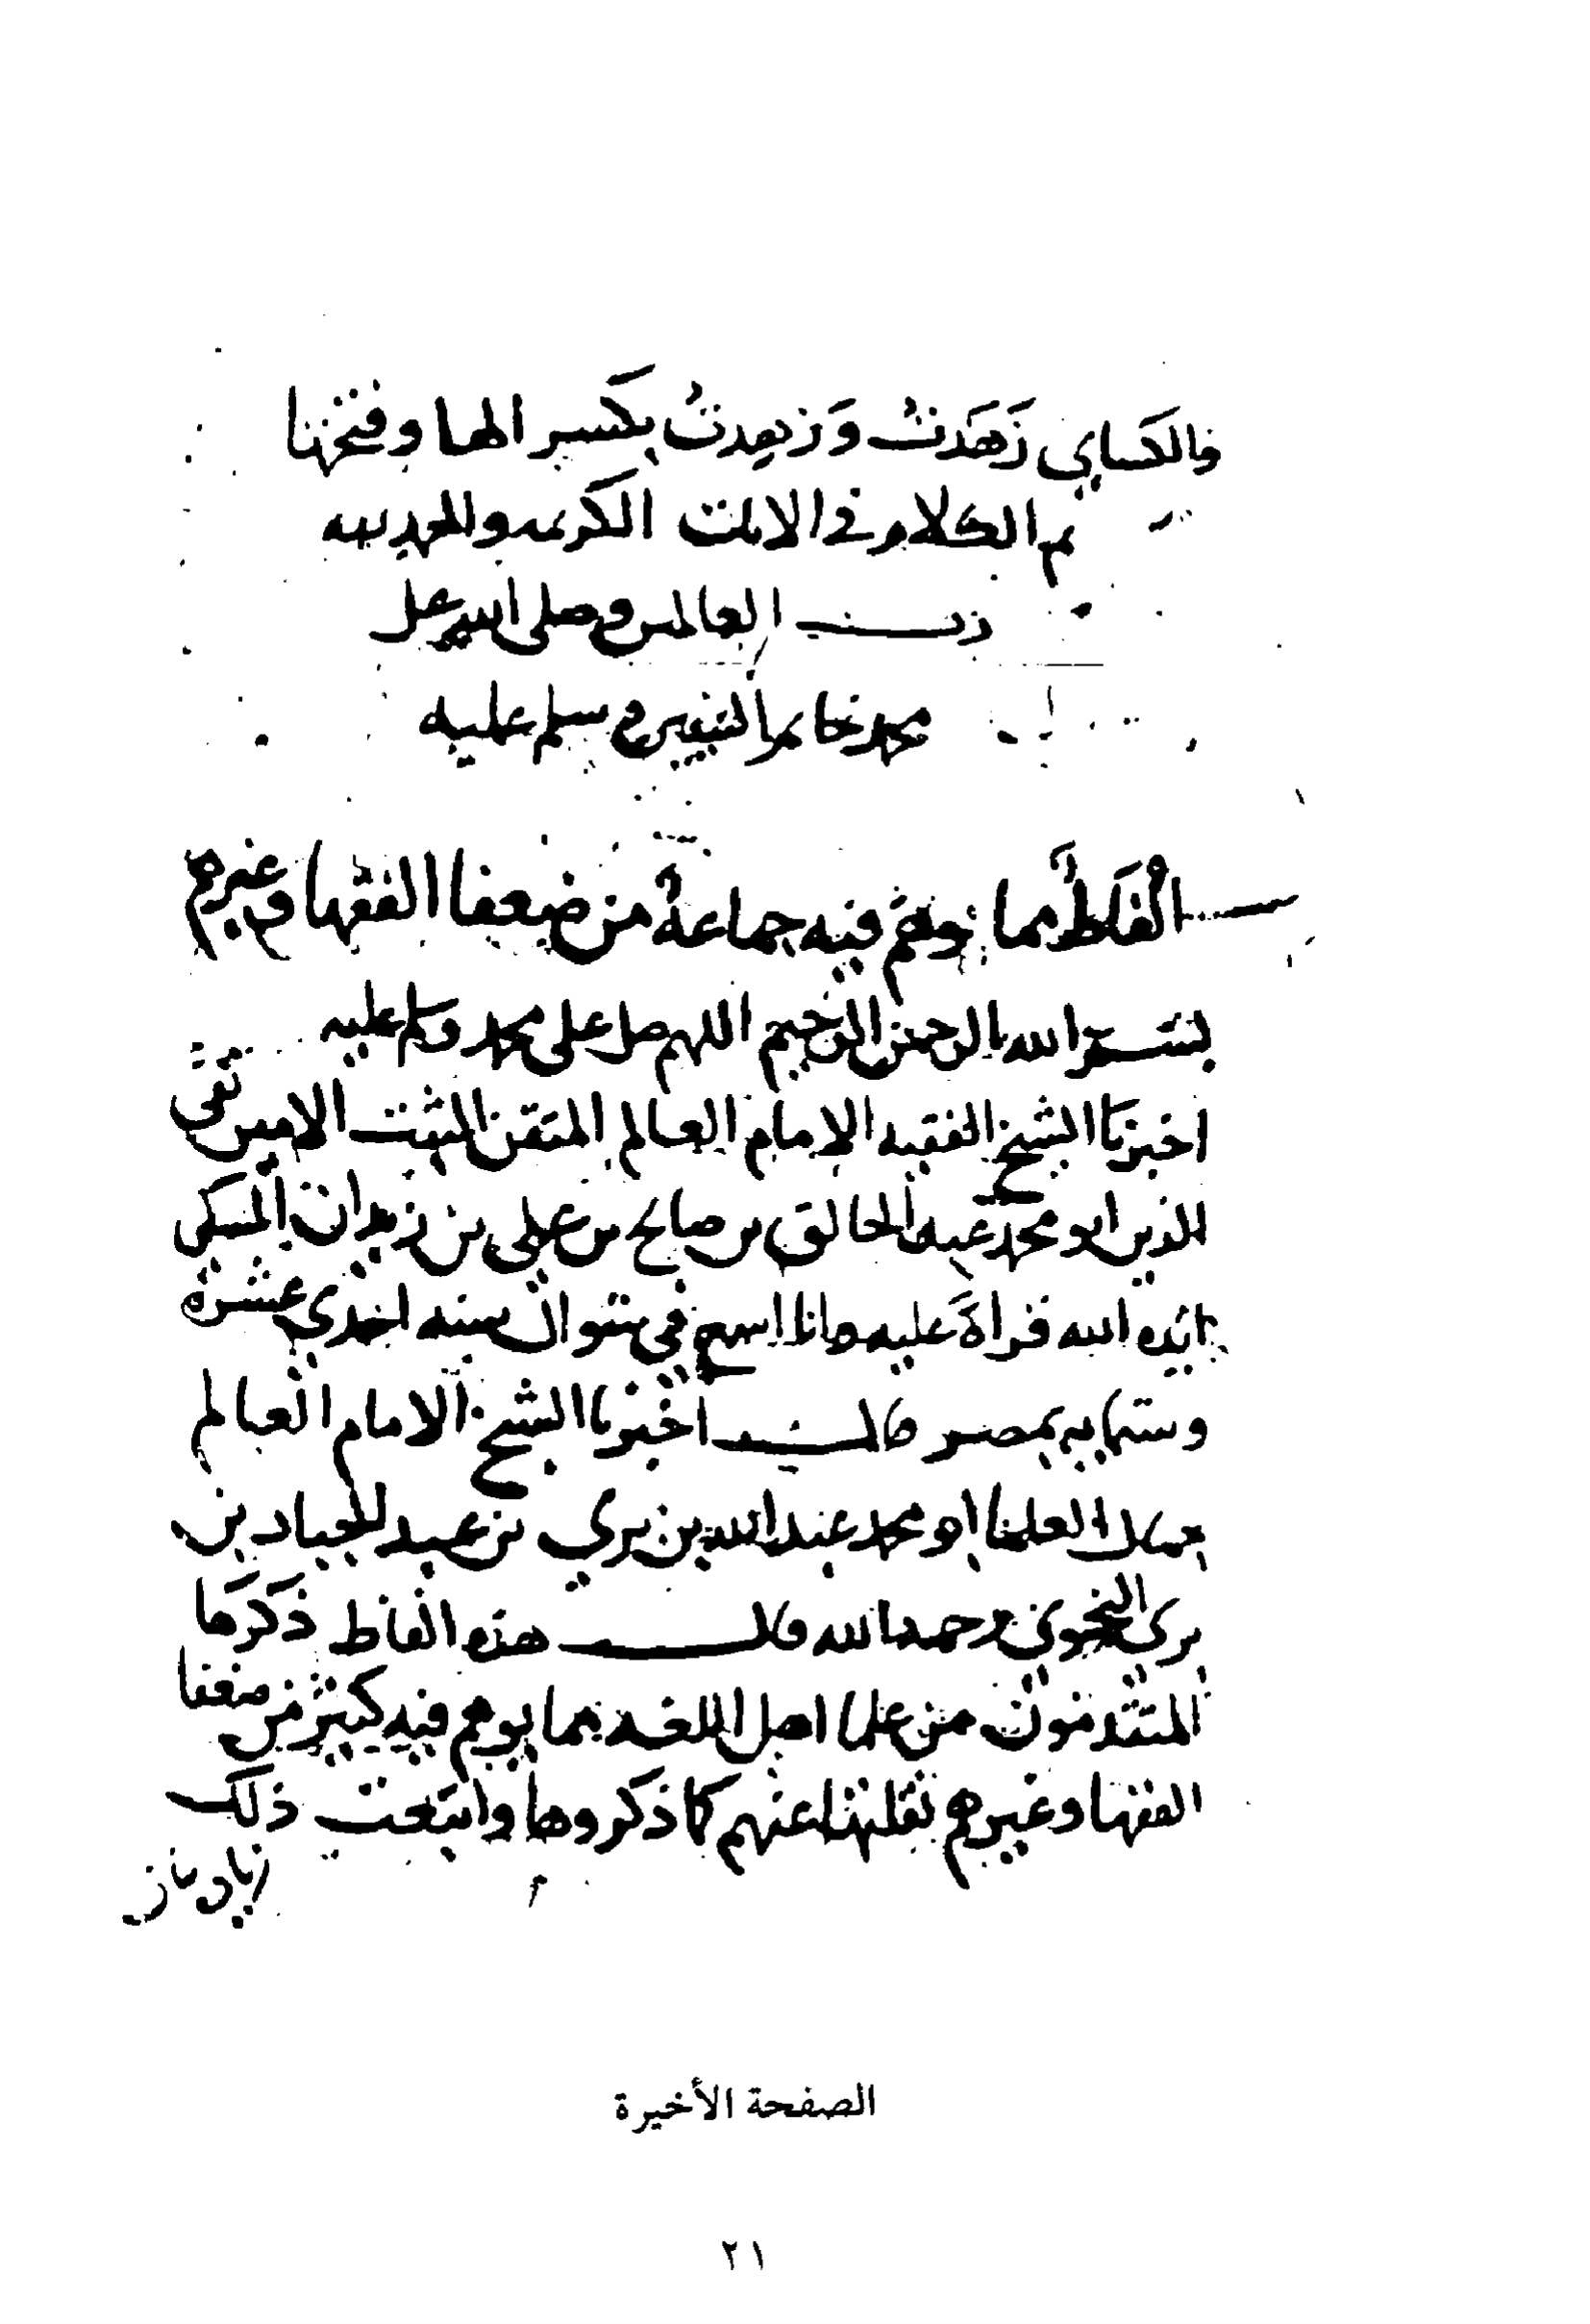 والكساي زَهَدتُ وَزَهِدتُ بكسر الها وفتحها
تم الكلام في الايات الكريمه والحمد لله
رب العالمين وصلى الله على
محمد خاتم النبيين وسلم عليه
الغَلَط مما وهم فيه جماعةٌ من ضعفا الفقها وغيرهم
بسم الله الرحمن الرحيم اللهم صل على محمد وسلم عليه
اخبرنا الشيخ الفقيه الامام العالم المتقن الثبت الامين تقي
الدين ابو محمد عبد الخالق بن صالح بن علي بن زيدان المسكي
ايده الله قراةً عليه وانا اسمع في شوال سنه احدي عشرة
وستمايه بمصر قال اخبرنا الشيخ الامام العالم
جمال العلما ابو محمد عبد الله بن بري بن عبد الجبار بن
بري النحوي رحمه الله قال هذه الفاظ ذكرها
المتقدمون من علما اهل اللغه مما يوهم فيه كثير من ضعفا
الفقها وغيرهم نقلتها عنهم كما ذكروها واتبعت ذلك
الصفحة الأخيرة
٢١